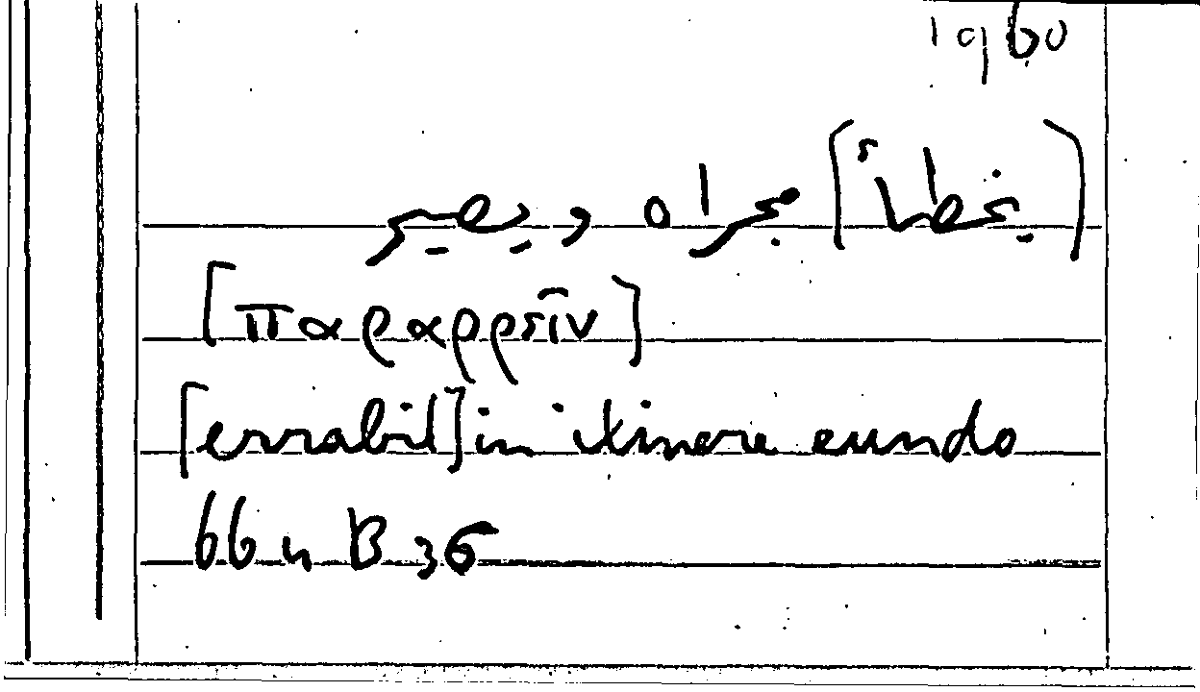 1960
(يخطأ) مجراه ويصير
[παραρρεῖν]
[errabit] in itinere eundo
66 u B 36